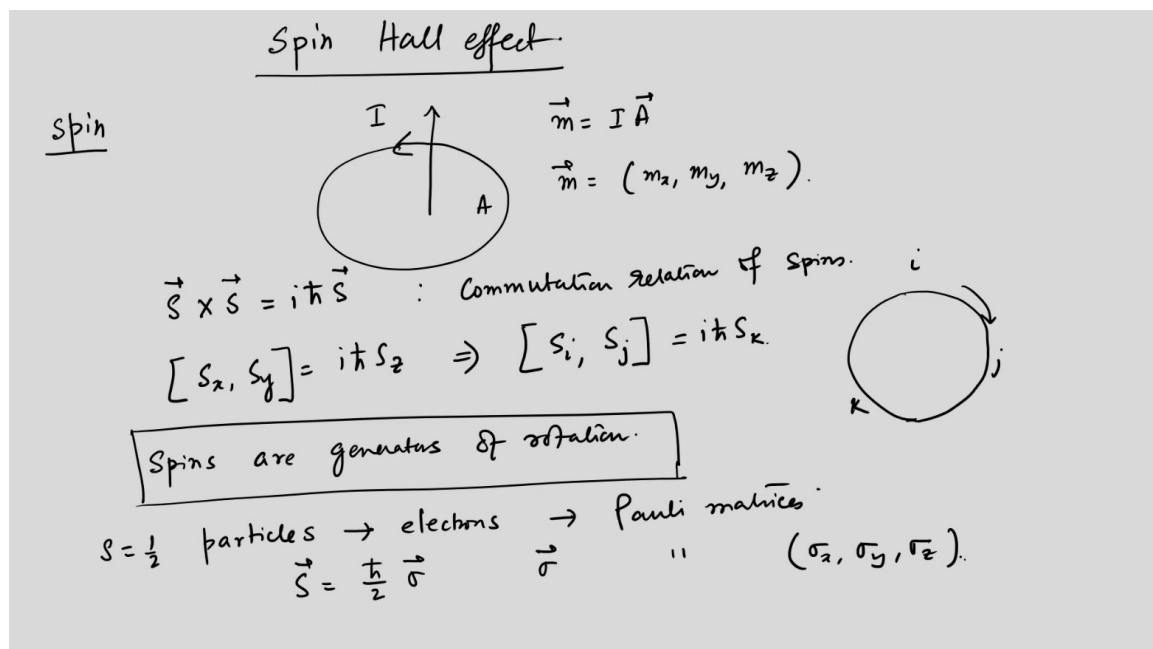 Spin Hall effect.
Spin
I
A
m⃗ = I A⃗
m⃗ = (mx, my, mz).
S⃗ × S⃗ = iħ S⃗ : Commutation relation of spins.
[Sx, Sy] = iħ Sz ⇒ [Si, Sj] = iħ Sk.
i
j
k
Spins are generators of rotation.
S = 1/2 particles → electrons → Pauli matrices
S⃗ = ħ/2 σ⃗ σ⃗ " (σx, σy, σz).